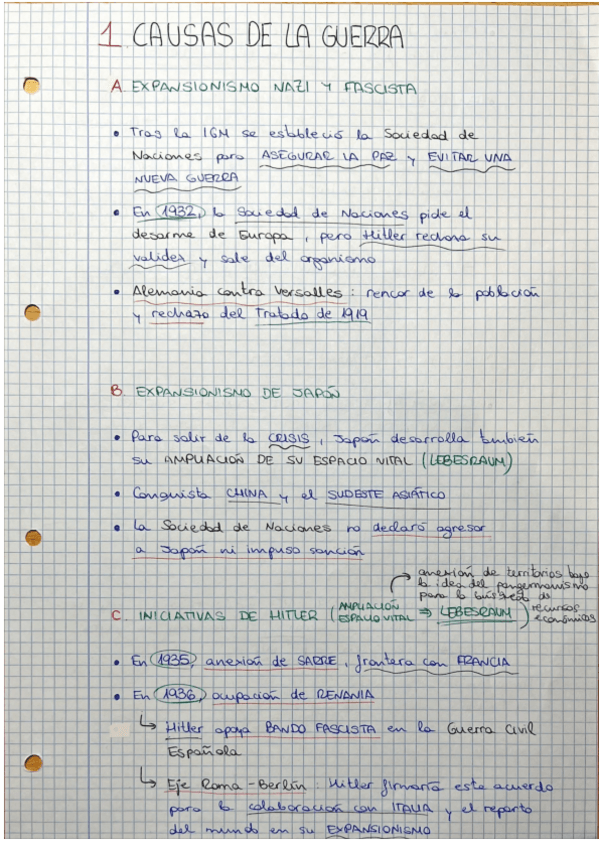 1. CAUSAS DE LA GUERRA
A. EXPANSIONISMO NAZI Y FASCISTA
• Tras la IGM se estableció la Sociedad de
Naciones para ASEGURAR LA PAZ y EVITAR UNA
NUEVA GUERRA
• En 1932, la Sociedad de Naciones pide el
desarme de Europa, pero Hitler rechaza su
validez y sale del organismo
• Alemania contra Versalles: rencor de la población
y rechazo del Tratado de 1919
B. EXPANSIONISMO DE JAPÓN
• Para salir de la CRISIS, Japón desarrolla también
su AMPLIACIÓN DE SU ESPACIO VITAL (LEBESRAUM)
• Conquista CHINA y el SUDESTE ASIÁTICO
• La Sociedad de Naciones no declaró agresor
a Japón ni impuso sanción
anexión de territorios bajo
la idea del pangermanismo
para la búsqueda de
recursos
económicos
C. INICIATIVAS DE HITLER (AMPLIACIÓN
ESPACIO VITAL ⇒ LEBESRAUM)
• En 1935, anexión de SARRE, frontera con FRANCIA
• En 1936, ocupación de RENANIA
↳ Hitler apoya BANDO FASCISTA en la Guerra Civil
Española
↳ Eje Roma-Berlín: Hitler firmaría este acuerdo
para la colaboración con ITALIA y el reparto
del mundo en su EXPANSIONISMO